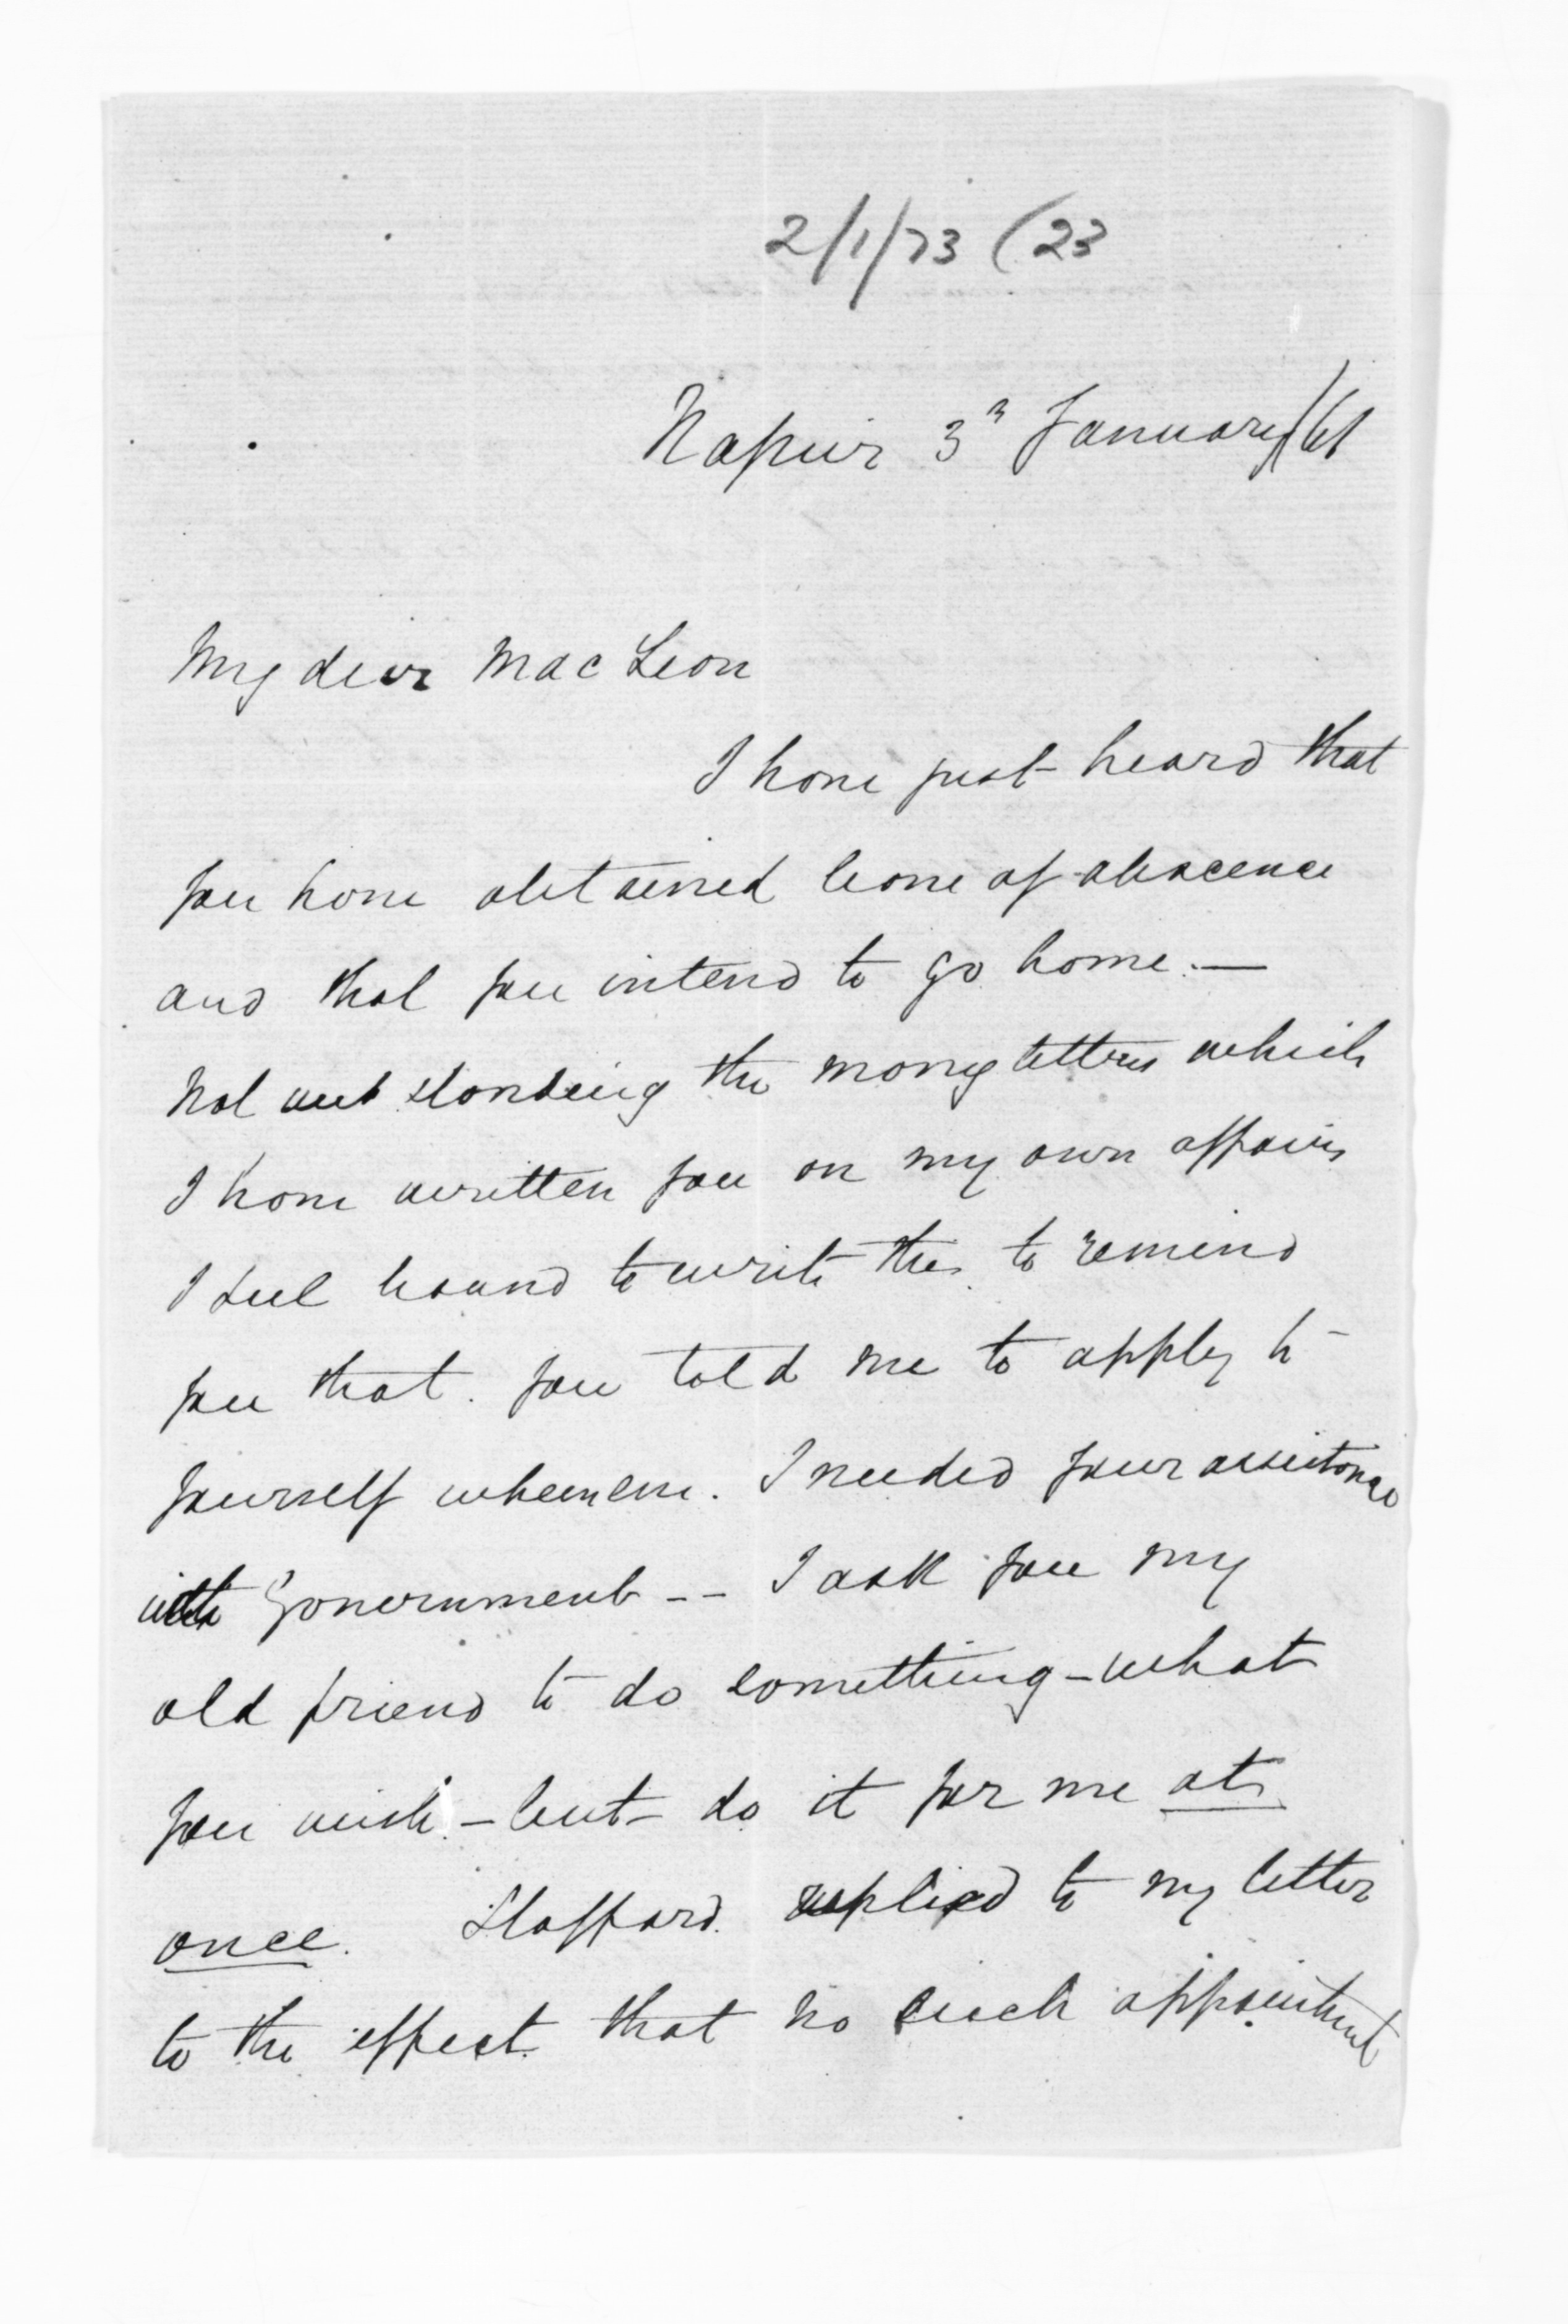 2/1/73 (23
Napier 3rd January/61
My dear Mac Lean
I have just heard that
you have obtained leave of abscence
and that you intend to go home. —
Not withstanding the many letters which
I have written you on my own affairs
I feel bound to write this to remind
you that you told me to apply to
yourself whenever I needed your assistance
with Government -- I ask you my
old friend to do something - what
you wish - but do it for me at
once. Stafford replied to my letter
to the effect that no such appointment